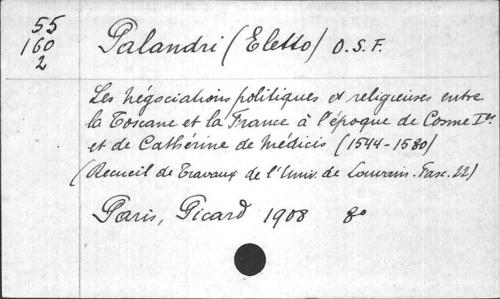 55
160
2
Palandri (Eletto) O.S.F.
Les négociations politiques et religieuses entre
la Toscane et la France à l'époque de Cosme Ier
et de Cathérine de Médicis (1544-1580)
(Recueil de Travaux de l'Univ. de Louvain. Fasc. 22)
Paris, Picard 1908 8º